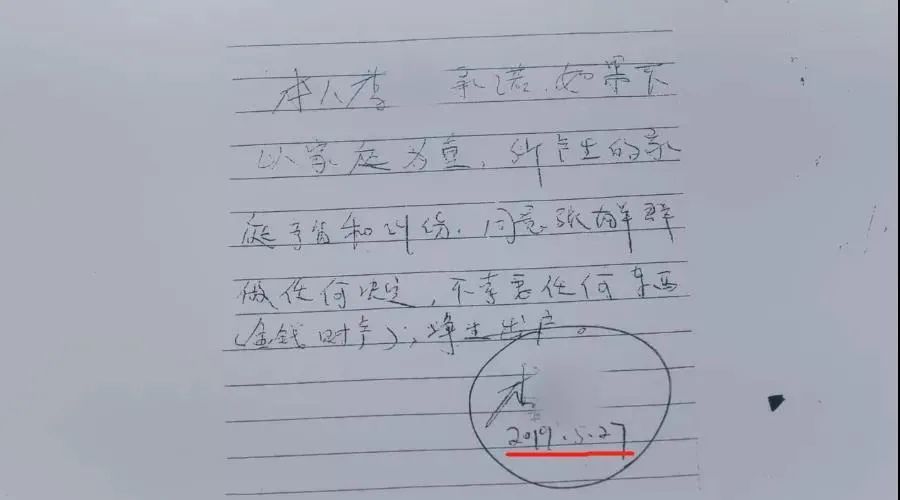 本人李 承诺,如果不
以家庭为重,所产生的家
庭矛盾和纠纷,同意张群群
做任何决定,不索要任何东西
(金钱财产),净生出户。
李
2019.5.27